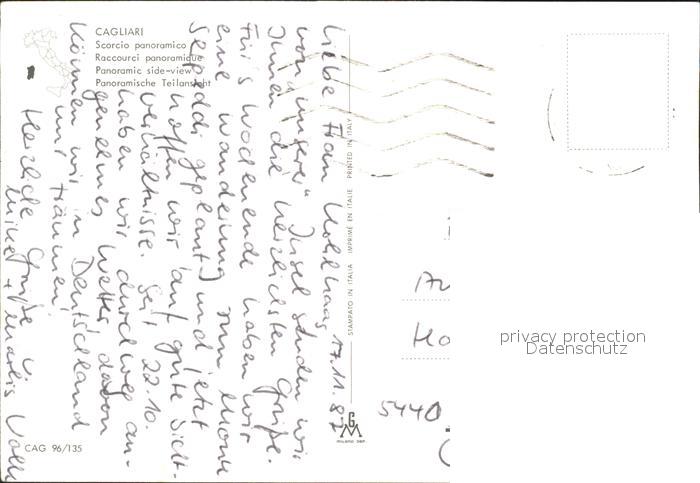 CAGLIARI
Scorcio panoramico
Raccourci panoramique
Panoramic side-view
Panoramische Teilansicht
17.11.82
Liebe Frau
von "unserer" Insel senden wir
Ihnen die herzlichsten Grüße.
Für's Wochenende haben wir
eine Wanderung zum Monte
Serpeddi geplant und jetzt
hoffen wir auf gute Sicht-
verhältnisse. Seit 22.10.
haben wir durchweg an-
genehmes Wetter, davon
können wir in Deutschland
nur träumen!
Herzliche Grüße
CAG 96/135
STAMPATO IN ITALIA IMPRIMÉ EN ITALIE PRINTED IN ITALY
GM
MILANO DEP.
5440
privacy protection
Datenschutz